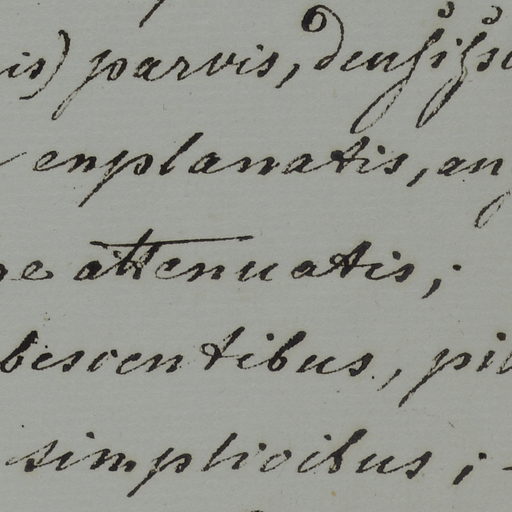 is) parvis, densiss
enplanatis, an
re attenuatis;
bescentibus, pil
simplicibus; -